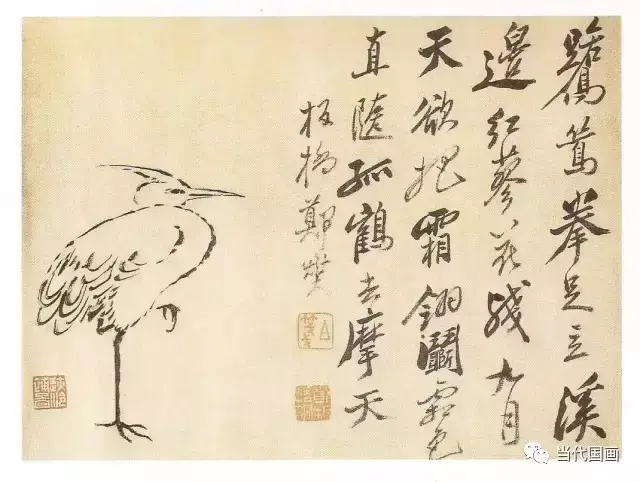 鷺鷥拳足立溪
邊紅蓼花殘九月
天欲把霜翎鬪霜色
直隨孤鶴去摩天
板橋鄭燮
当代国画